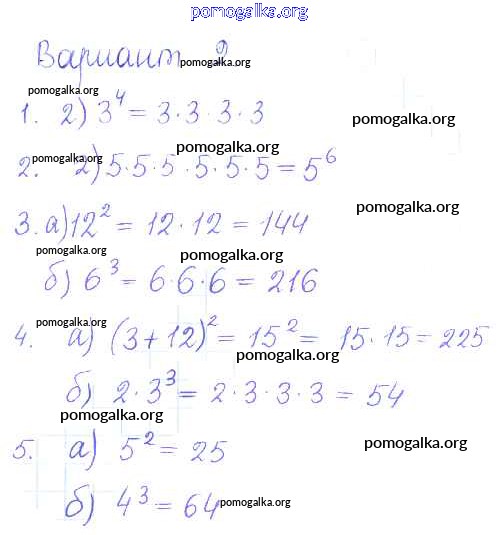 pomogalka.org
Вариант 2
pomogalka.org
pomogalka.org
1. 2) 3⁴ = 3·3·3·3
pomogalka.org
pomogalka.org
pomogalka.org
2. 2) 5·5·5·5·5·5 = 5⁶
pomogalka.org
3. а) 12² = 12·12 = 144
pomogalka.org
pomogalka.org
б) 6³ = 6·6·6 = 216
pomogalka.org
4. а) (3+12)² = 15² = 15·15 = 225
pomogalka.org
б) 2·3³ = 2·3·3·3 = 54
pomogalka.org
pomogalka.org
5. а) 5² = 25
б) 4³ = 64
pomogalka.org